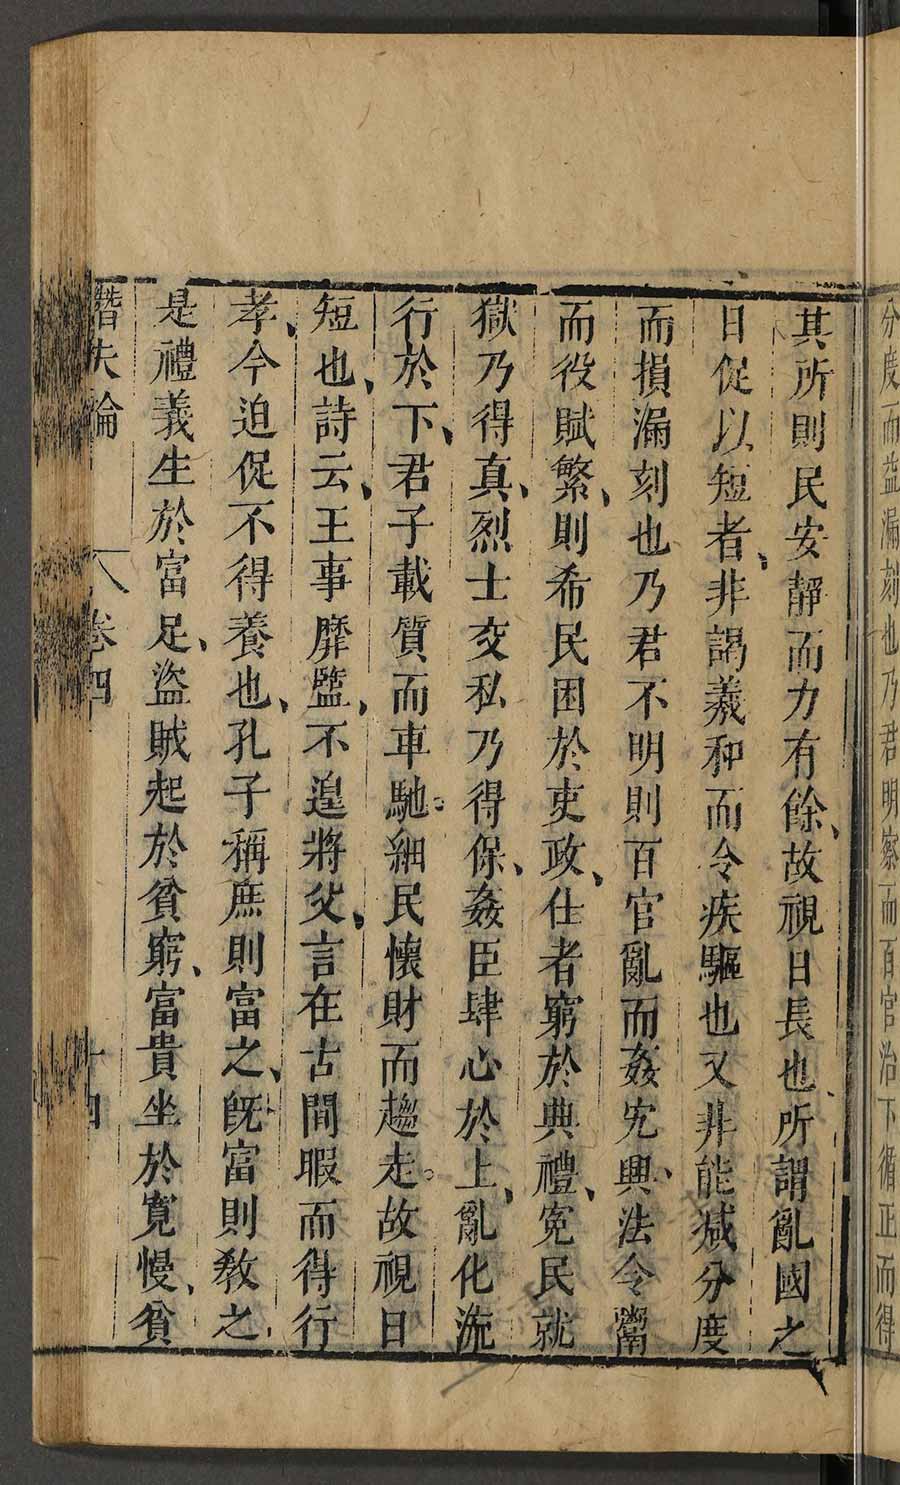 分度而益漏刻也乃君明察而百官治下循正而得
其所則民安靜而力有餘、故視日長也、所謂亂國之
日促以短者、非謁羲和而令疾驅也又非能减分度
而損漏刻也乃君不明則百官亂而姦宄興、法令鬻
而役賦繁、則希民困於吏政、仕者窮於典禮、寃民就
獄乃得真、烈士交私乃得保、姦臣肆心於上、亂化流
行於下、君子載質而車馳。細民懷財而趨走。故視日
短也、詩云、王事靡盬、不遑將父、言在古閒暇而得行
孝、今迫促不得養也、孔子稱庶則富之、旣富則教之、
是禮義生於富足、盜賊起於貧窮、富貴坐於寛慢、貧
潛夫論 卷四 十四